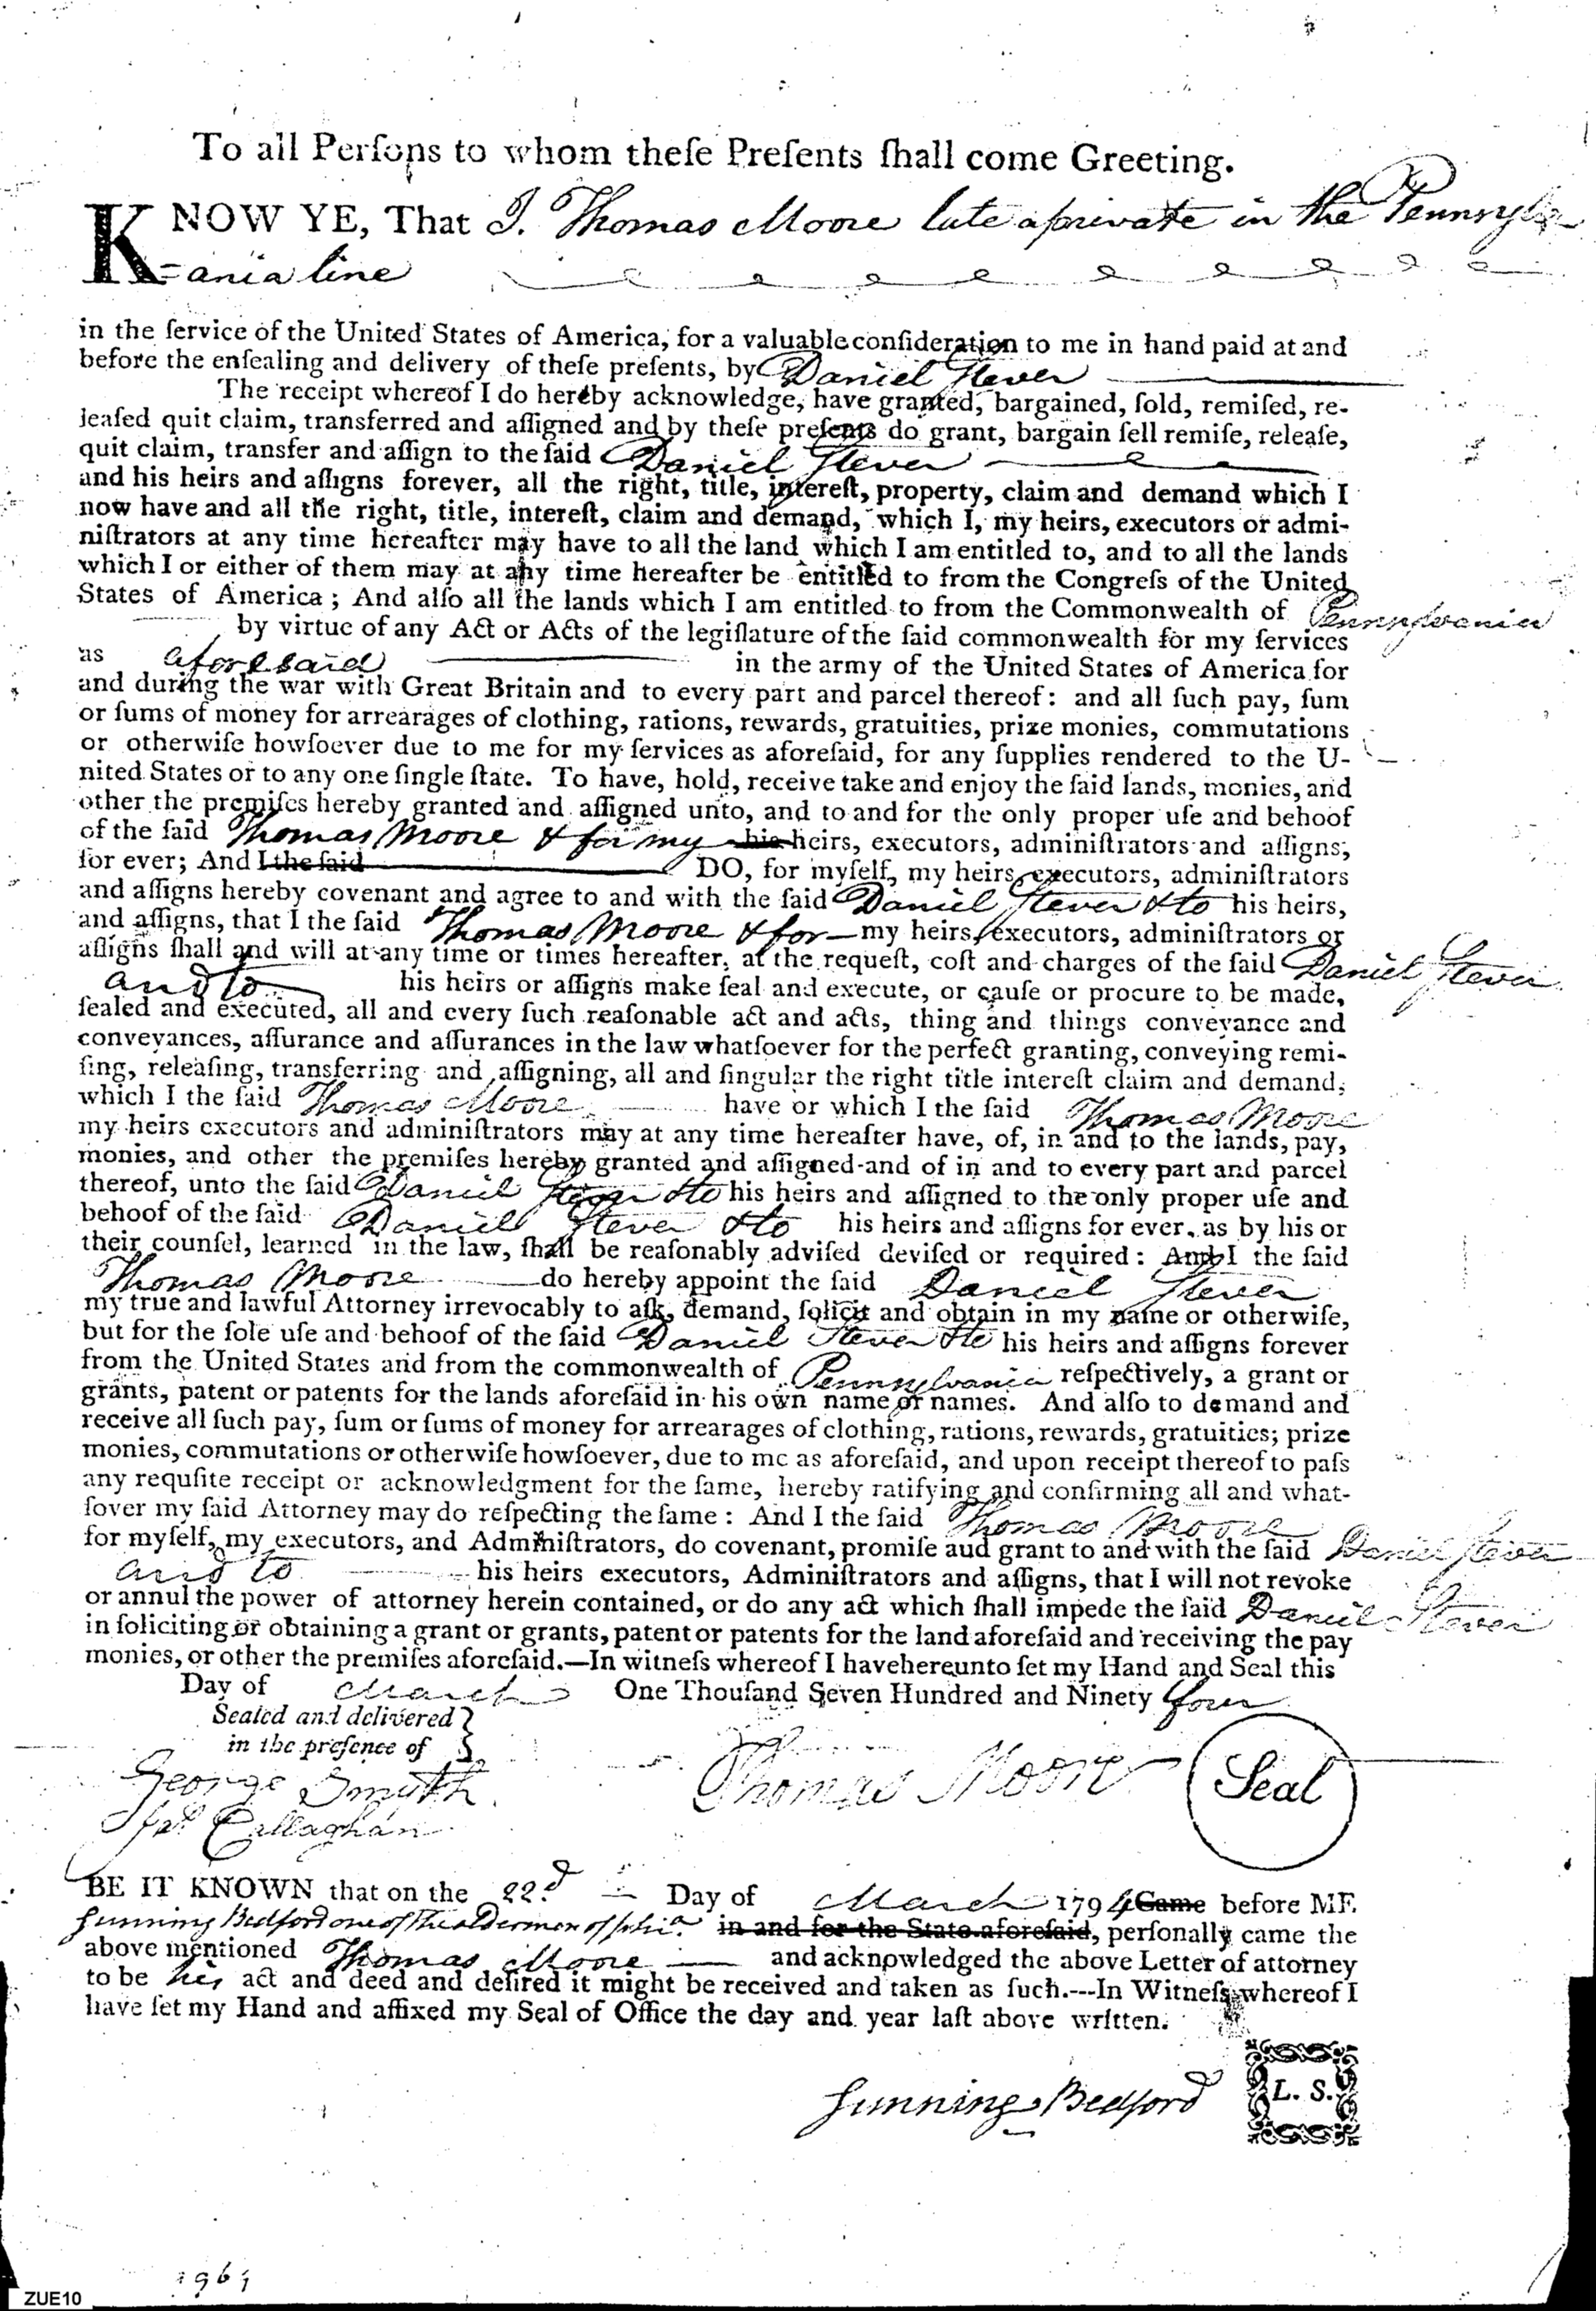 To all Perſons to whom theſe Preſents ſhall come Greeting.
KNOW YE, That I. Thomas Moore late a private in the Pennsylv
=ania line
in the ſervice of the United States of America, for a valuable conſideration to me in hand paid at and
before the enſealing and delivery of theſe preſents, by Daniel Stever
The receipt whereof I do hereby acknowledge, have granted, bargained, ſold, remiſed, re-
leaſed quit claim, transferred and aſſigned and by theſe preſents do grant, bargain ſell remiſe, releaſe,
quit claim, transfer and aſſign to the ſaid Daniel Stever
and his heirs and aſſigns forever, all the right, title, intereſt, property, claim and demand which I
now have and all the right, title, intereſt, claim and demand, which I, my heirs, executors or admi-
niſtrators at any time hereafter may have to all the land which I am entitled to, and to all the lands
which I or either of them may at any time hereafter be entitled to from the Congreſs of the United
States of America; And alſo all the lands which I am entitled to from the Commonwealth of Pennsylvania
by virtue of any Act or Acts of the legiſlature of the ſaid commonwealth for my ſervices
as aforesaid in the army of the United States of America for
and during the war with Great Britain and to every part and parcel thereof: and all ſuch pay, ſum
or ſums of money for arrearages of clothing, rations, rewards, gratuities, prize monies, commutations
or otherwiſe howſoever due to me for my ſervices as aforeſaid, for any ſupplies rendered to the U-
nited States or to any one ſingle ſtate. To have, hold, receive take and enjoy the ſaid lands, monies, and
other the premiſes hereby granted and aſſigned unto, and to and for the only proper uſe and behoof
of the ſaid Thomas Moore & for my his heirs, executors, adminiſtrators and aſſigns,
for ever; And I the ſaid DO, for myſelf, my heirs, executors, adminiſtrators
and aſſigns hereby covenant and agree to and with the ſaid Daniel Stever & to his heirs,
and aſſigns, that I the ſaid Thomas Moore & for my heirs, executors, adminiſtrators or
aſſigns ſhall and will at any time or times hereafter, at the requeſt, coſt and charges of the ſaid Daniel Stever
and to his heirs or aſſigns make ſeal and execute, or cauſe or procure to be made,
ſealed and executed, all and every ſuch reaſonable act and acts, thing and things conveyance and
conveyances, aſſurance and aſſurances in the law whatſoever for the perfect granting, conveying remi-
ſing, releaſing, transferring and aſſigning, all and ſingular the right title intereſt claim and demand,
which I the ſaid Thomas Moore have or which I the ſaid Thomas Moore
my heirs executors and adminiſtrators may at any time hereafter have, of, in and to the lands, pay,
monies, and other the premiſes hereby granted and aſſigned-and of in and to every part and parcel
thereof, unto the ſaid Daniel Stever & to his heirs and aſſigned to the only proper uſe and
behoof of the ſaid Daniel Stever & to his heirs and aſſigns for ever, as by his or
their counſel, learned in the law, ſhall be reaſonably adviſed deviſed or required: And I the ſaid
Thomas Moore do hereby appoint the ſaid Daniel Stever
my true and lawful Attorney irrevocably to aſk, demand, ſolicit and obtain in my name or otherwiſe,
but for the ſole uſe and behoof of the ſaid Daniel Stever & to his heirs and aſſigns forever
from the United States and from the commonwealth of Pennsylvania reſpectively, a grant or
grants, patent or patents for the lands aforeſaid in his own name or names. And alſo to demand and
receive all ſuch pay, ſum or ſums of money for arrearages of clothing, rations, rewards, gratuities; prize
monies, commutations or otherwiſe howſoever, due to me as aforeſaid, and upon receipt thereof to paſs
any requſite receipt or acknowledgment for the ſame, hereby ratifying and confirming all and what-
ſover my ſaid Attorney may do reſpecting the ſame: And I the ſaid Thomas Moore
for myſelf, my executors, and Adminiſtrators, do covenant, promiſe aud grant to and with the ſaid Daniel Stever
and to his heirs executors, Adminiſtrators and aſſigns, that I will not revoke
or annul the power of attorney herein contained, or do any act which ſhall impede the ſaid Daniel Stever
in ſoliciting or obtaining a grant or grants, patent or patents for the land aforeſaid and receiving the pay
monies, or other the premiſes aforeſaid.—In witneſs whereof I have hereunto ſet my Hand and Seal this
Day of March One Thouſand Seven Hundred and Ninety four
Sealed and delivered
in the preſence of
George Smyth Thomas Moore Seal
Callaghan
BE IT KNOWN that on the 22d Day of March 1794 Came before ME
Gunning Bedford one of the aldermen of Phia. in and for the State aforeſaid, perſonally came the
above mentioned Thomas Moore and acknowledged the above Letter of attorney
to be his act and deed and deſired it might be received and taken as ſuch.---In Witneſs whereof I
have ſet my Hand and affixed my Seal of Office the day and year laſt above written.
Gunning Bedford L. S.
ZUE10